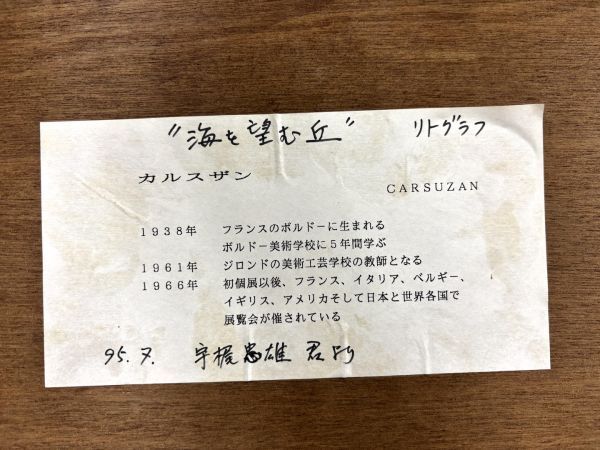 "海を望む丘" リトグラフ
カルスザン CARSUZAN
1938年 フランスのボルドーに生まれる
ボルドー美術学校に5年間学ぶ
1961年 ジロンドの美術工芸学校の教師となる
1966年 初個展以後、フランス、イタリア、ベルギー、
イギリス、アメリカそして日本と世界各国で
展覧会が催されている
95.7. 忠雄君より